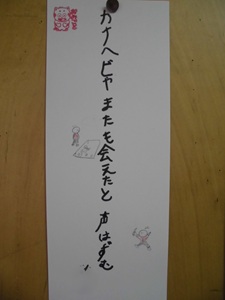 カナヘビや またも会えたと 声はずむ